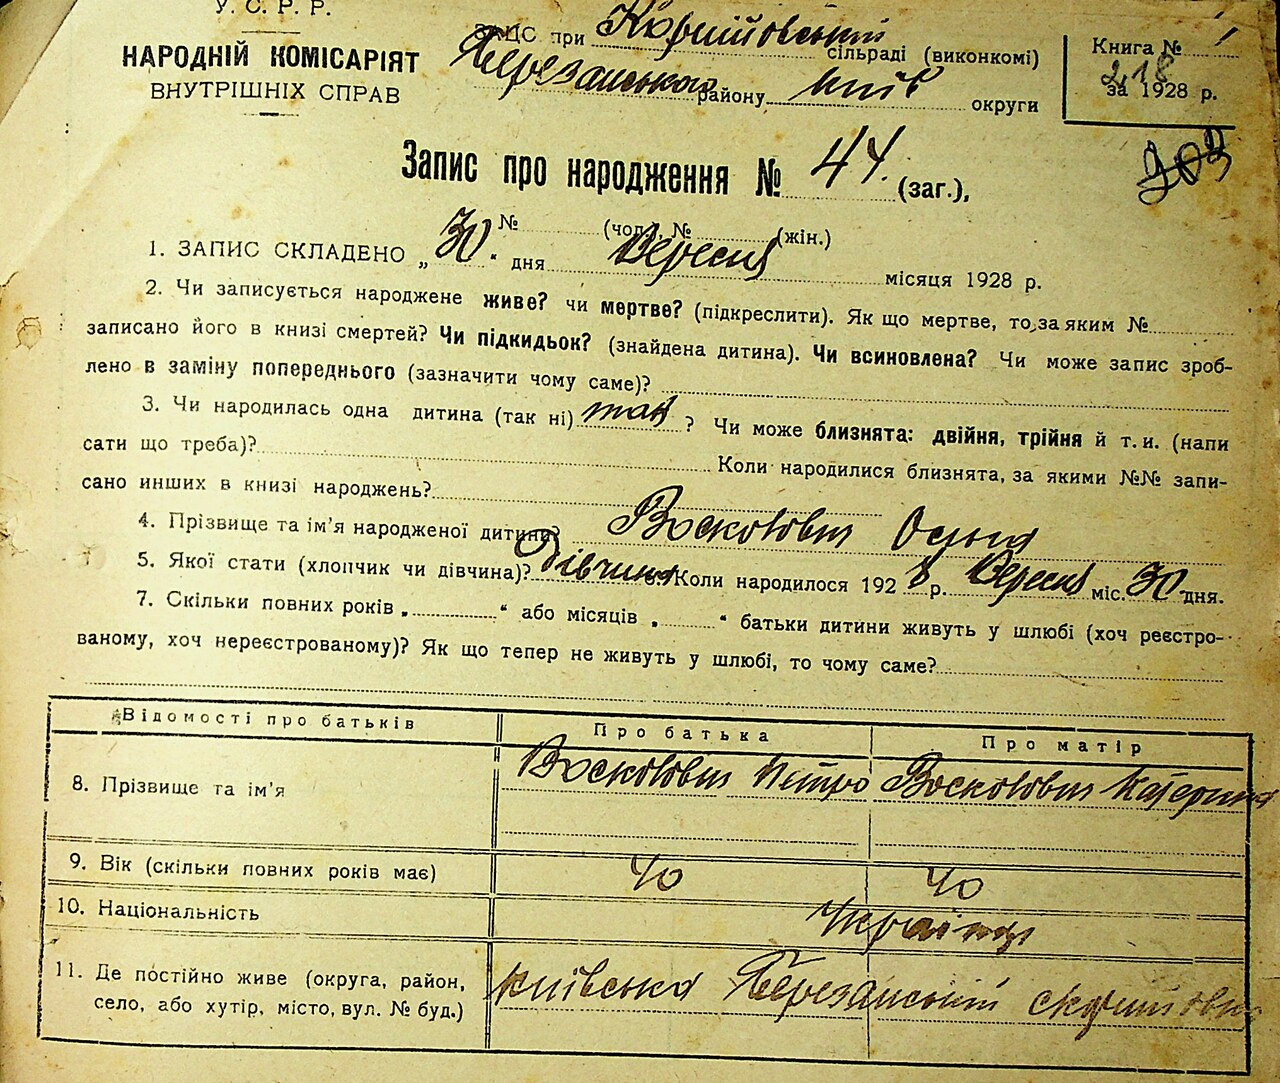 У. С. Р. Р.
НАРОДНІЙ КОМІСАРІЯТ
ВНУТРІШНІХ СПРАВ
ЗАЦС при сільраді (виконкомі)
Березанського району Київ округи
Книга №
218
за 1928 р.
Запис про народження № 44. (заг.),
№ (чол.), № (жін.)
1. ЗАПИС СКЛАДЕНО „ 30 “ дня Вересня місяця 1928 р.
2. Чи записується народжене живе? чи мертве? (підкреслити). Як що мертве, то за яким №
записано його в книзі смертей? Чи підкидьок? (знайдена дитина). Чи всиновлена? Чи може запис зроб-
лено в заміну попереднього (зазначити чому саме)?
3. Чи народилась одна дитина (так ні) так ? Чи може близнята: двійня, трійня й т. и. (напи
сати що треба)? Коли народилися близнята, за якими №№ запи-
сано инших в книзі народжень?
4. Прізвище та ім'я народженої дитини?
5. Якої стати (хлопчик чи дівчина)? дівчина Коли народилося 192 8 р. Вересня міс. 30 дня.
7. Скільки повних років „ “ або місяців „ “ батьки дитини живуть у шлюбі (хоч реєстро-
ваному, хоч нереєстрованому)? Як що тепер не живуть у шлюбі, то чому саме?
Відомості про батьків Про батька Про матір
8. Прізвище та ім'я Петро Катерина
9. Вік (скільки повних років має) 40 40
10. Національність Українці
11. Де постійно живе (округа, район,
село, або хутір, місто, вул. № буд.) Київська Березанський